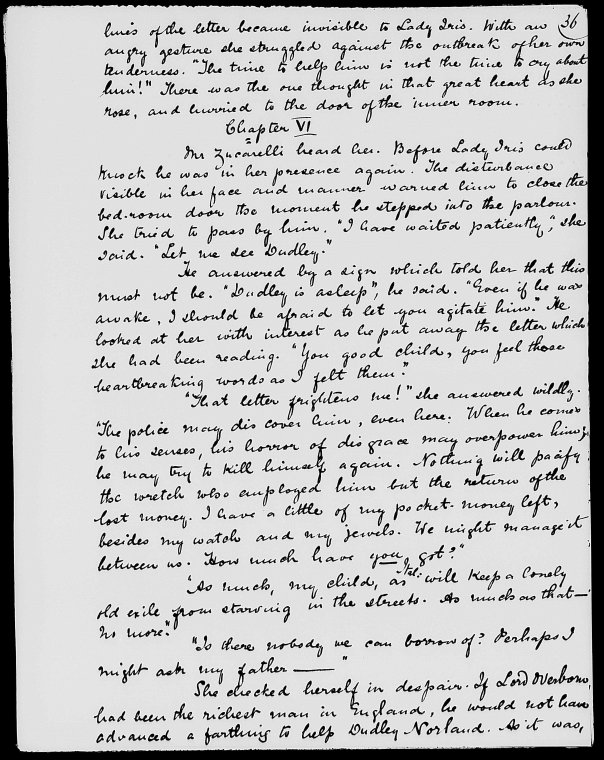 36
lines of the letter became invisible to Lady Iris. With an
angry gesture she struggled against the outbreak of her own
tenderness. "The time to help him is not the time to cry about
him!" There was the one thought in that great heart as she
rose, and hurried to the door of the inner room.
Chapter VI
Mr Zucarelli heard her. Before Lady Iris could
knock he was in her presence again. The disturbance
visible in her face and manner warned him to close the
bed-room door the moment he stepped into the parlour.
She tried to pass by him. "I have waited patiently", she
said. "Let me see Dudley."
He answered by a sign which told her that this
must not be. "Dudley is asleep", he said. "Even if he was
awake, I should be afraid to let you agitate him." He
looked at her with interest as he put away the letter which
she had been reading. "You good child, you feel those
heartbreaking words as I felt them."
"That letter frightens me!" she answered wildly.
"The police may discover him, even here. When he comes
to his senses, his horror of disgrace may overpower him;
he may try to kill himself again. Nothing will pacify
the wretch who employed him but the return of the
lost money. I have a little of my pocket-money left,
besides my watch and my jewels. We might manage it
between us. How much have you got?"
"As much, my child, as will keep a lonely
old exile from starving in the streets. As much as that —
no more."
"Is there nobody we can borrow of? Perhaps I
might ask my father — "
She checked herself in despair. If Lord
had been the richest man in England, he would not have
advanced a farthing to help Dudley Norland. As it was,